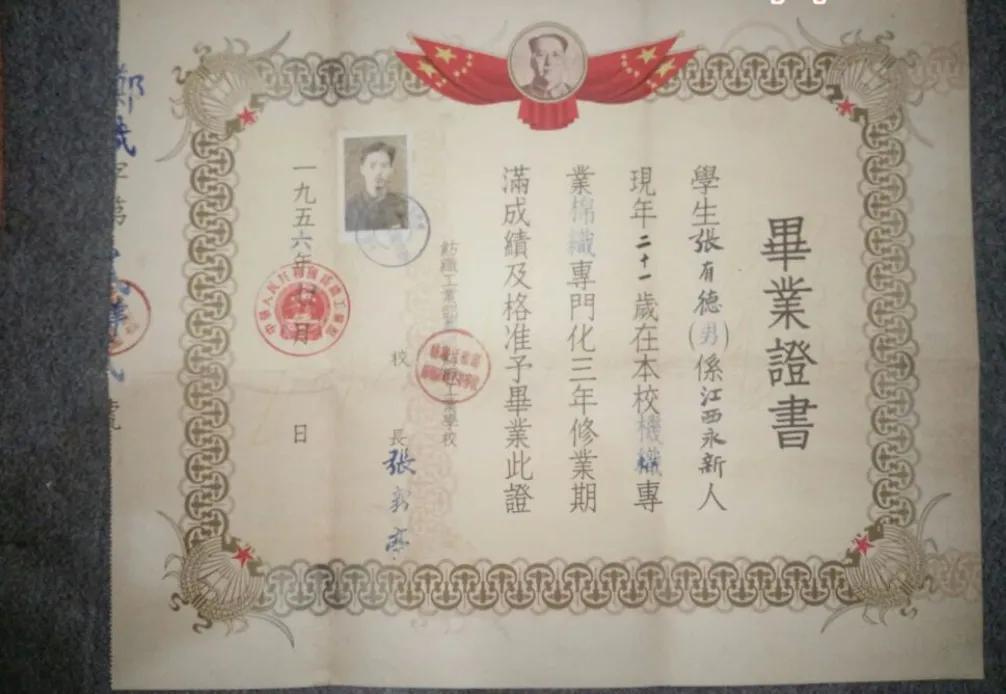 畢業證書
學生張有德(男)係江西永新人
現年二十一歲在本校機織專
業棉織專門化三年修業期
滿成績及格准予畢業此證
紡織工業部 工業學校
校 長 張
一九五六年七月 日
字第 號